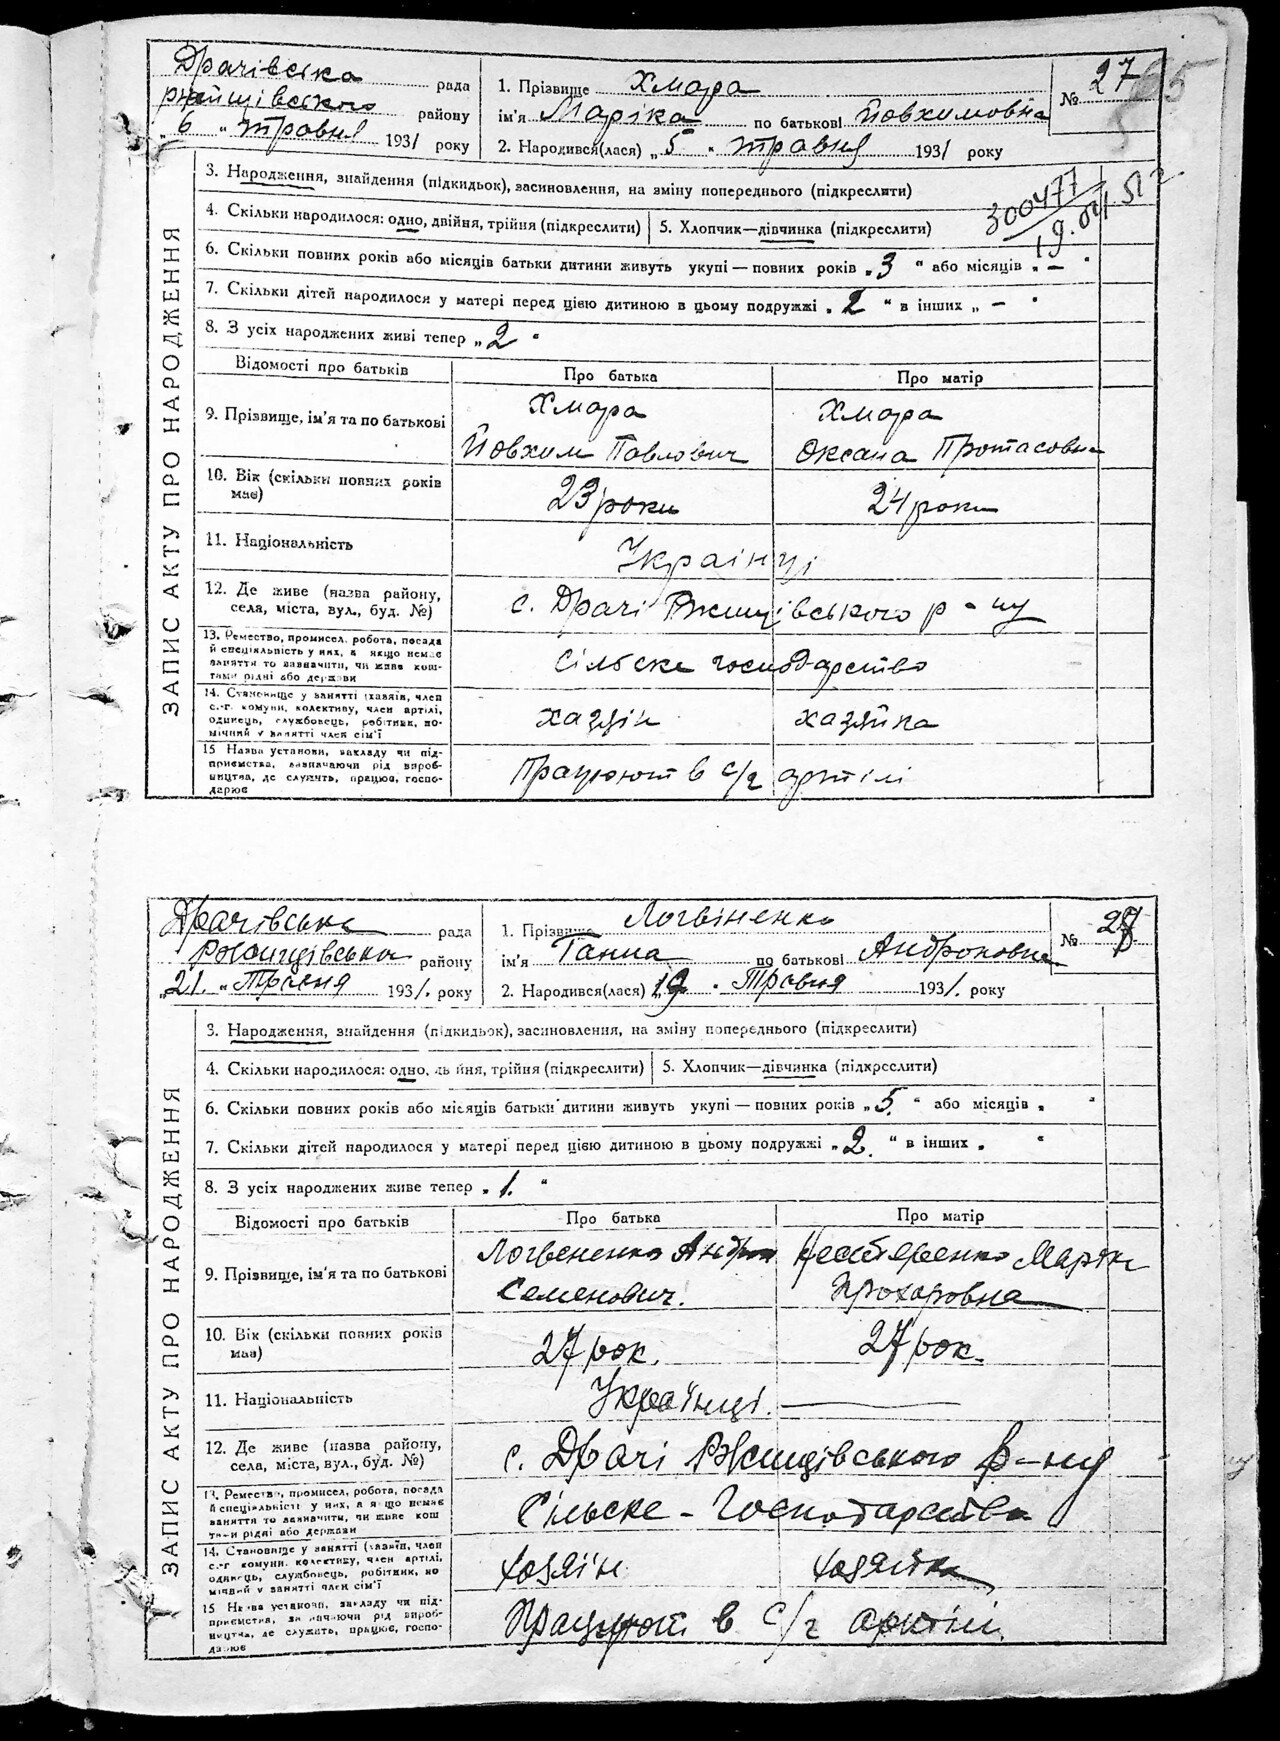 Драчівська рада
Ржищівського району
„6 „ травня 1931 року
1. Прізвище Хмара
ім'я Маріка по батькові Йовхимовна
2. Народився(лася) „5 „ травня 1931 року
№ 27
65
300477
19.
ЗАПИС АКТУ ПРО НАРОДЖЕННЯ
3. Народження, знайдення (підкидьок), засиновлення, на зміну попереднього (підкреслити)
4. Скільки народилося: одно, двійня, трійня (підкреслити) 5. Хлопчик—дівчинка (підкреслити)
6. Скільки повних років або місяців батьки дитини живуть укупі — повних років „3 “ або місяців „ — “
7. Скільки дітей народилося у матері перед цією дитиною в цьому подружжі „2 “ в інших „ — “
8. З усіх народжених живі тепер „2 “
Відомості про батьків Про батька Про матір
9. Прізвище, ім'я та по батькові
Хмара Хмара
Йовхим Павлович Оксана Протасовна
10. Вік (скільки повних років має) 23 роки 24 роки
11. Національність Українці
12. Де живе (назва району, села, міста, вул., буд. №) с. Драчі Ржищівського р-ну
13. Ремество, промисел, робота, посада й спеціяльність у них, а якщо немає заняття то зазначити, чи живе коштами рідні або держави
Сільске господарство
14. Становище у занятті (хазяїн, член с.-г. комуни, колективу, член артілі, одинець, службовець, робітник, помічний у занятті член сім'ї
хазяін хазяйка
15 Назва установи, закладу чи підприємства, зазначаючи рід виробництва, де служить, працює, господарює
Працюют в с/г артілі
Драчівська рада
Ржищівська району
„21. „ Травня 1931. року
1. Прізвище Логвіненко
ім'я Ганна по батькові Андроновна
2. Народився(лася) „19 „ Травня 1931. року
№ 28
ЗАПИС АКТУ ПРО НАРОДЖЕННЯ
3. Народження, знайдення (підкидьок), засиновлення, на зміну попереднього (підкреслити)
4. Скільки народилося: одно, двійня, трійня (підкреслити) 5. Хлопчик—дівчинка (підкреслити)
6. Скільки повних років або місяців батьки дитини живуть укупі — повних років „5. “ або місяців „ “
7. Скільки дітей народилося у матері перед цією дитиною в цьому подружжі „2. “ в інших „ “
8. З усіх народжених живе тепер „1. “
Відомості про батьків Про батька Про матір
9. Прізвище, ім'я та по батькові
Логвененко Андрон Нестеренко Марія
Семенович. Прохоровна
10. Вік (скільки повних років має) 27 рок. 27 рок.
11. Національність Українці.
12. Де живе (назва району, села, міста, вул., буд. №) с. Драчі Ржищівського р-ну
13. Ремество, промисел, робота, посада й спеціяльність у них, а якщо немає заняття то зазначити, чи живе коштами рідні або держави
Сільске - Господарство
14. Становище у занятті (хазяїн, член с.-г. комуни, колективу, член артілі, одинець, службовець, робітник, помічний у занятті член сім'ї
хозяїн хозяйка
15 Назва установи, закладу чи підприємства, зазначаючи рід виробництва, де служить, працює, господарює
Працуют в с/г артілі.